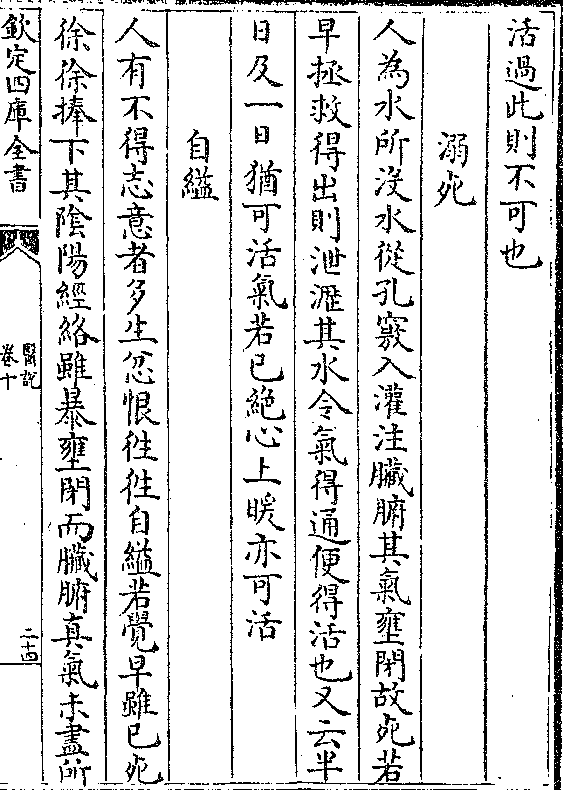 活過此則不可也
溺死
人為水所沒水從孔竅入灌注臟腑其氣壅閉故死若
早拯救得出則泄瀝其水令氣得通便得活也又云半
日及一日猶可活氣若已絶心上暖亦可活
自縊
人有不得志意者多生忿恨徃徃自縊若覺早雖已死
徐徐捧下其陰陽經絡雖暴壅閉而臟腑真氣未盡所
欽定四庫全書
醫說
卷十
二十四